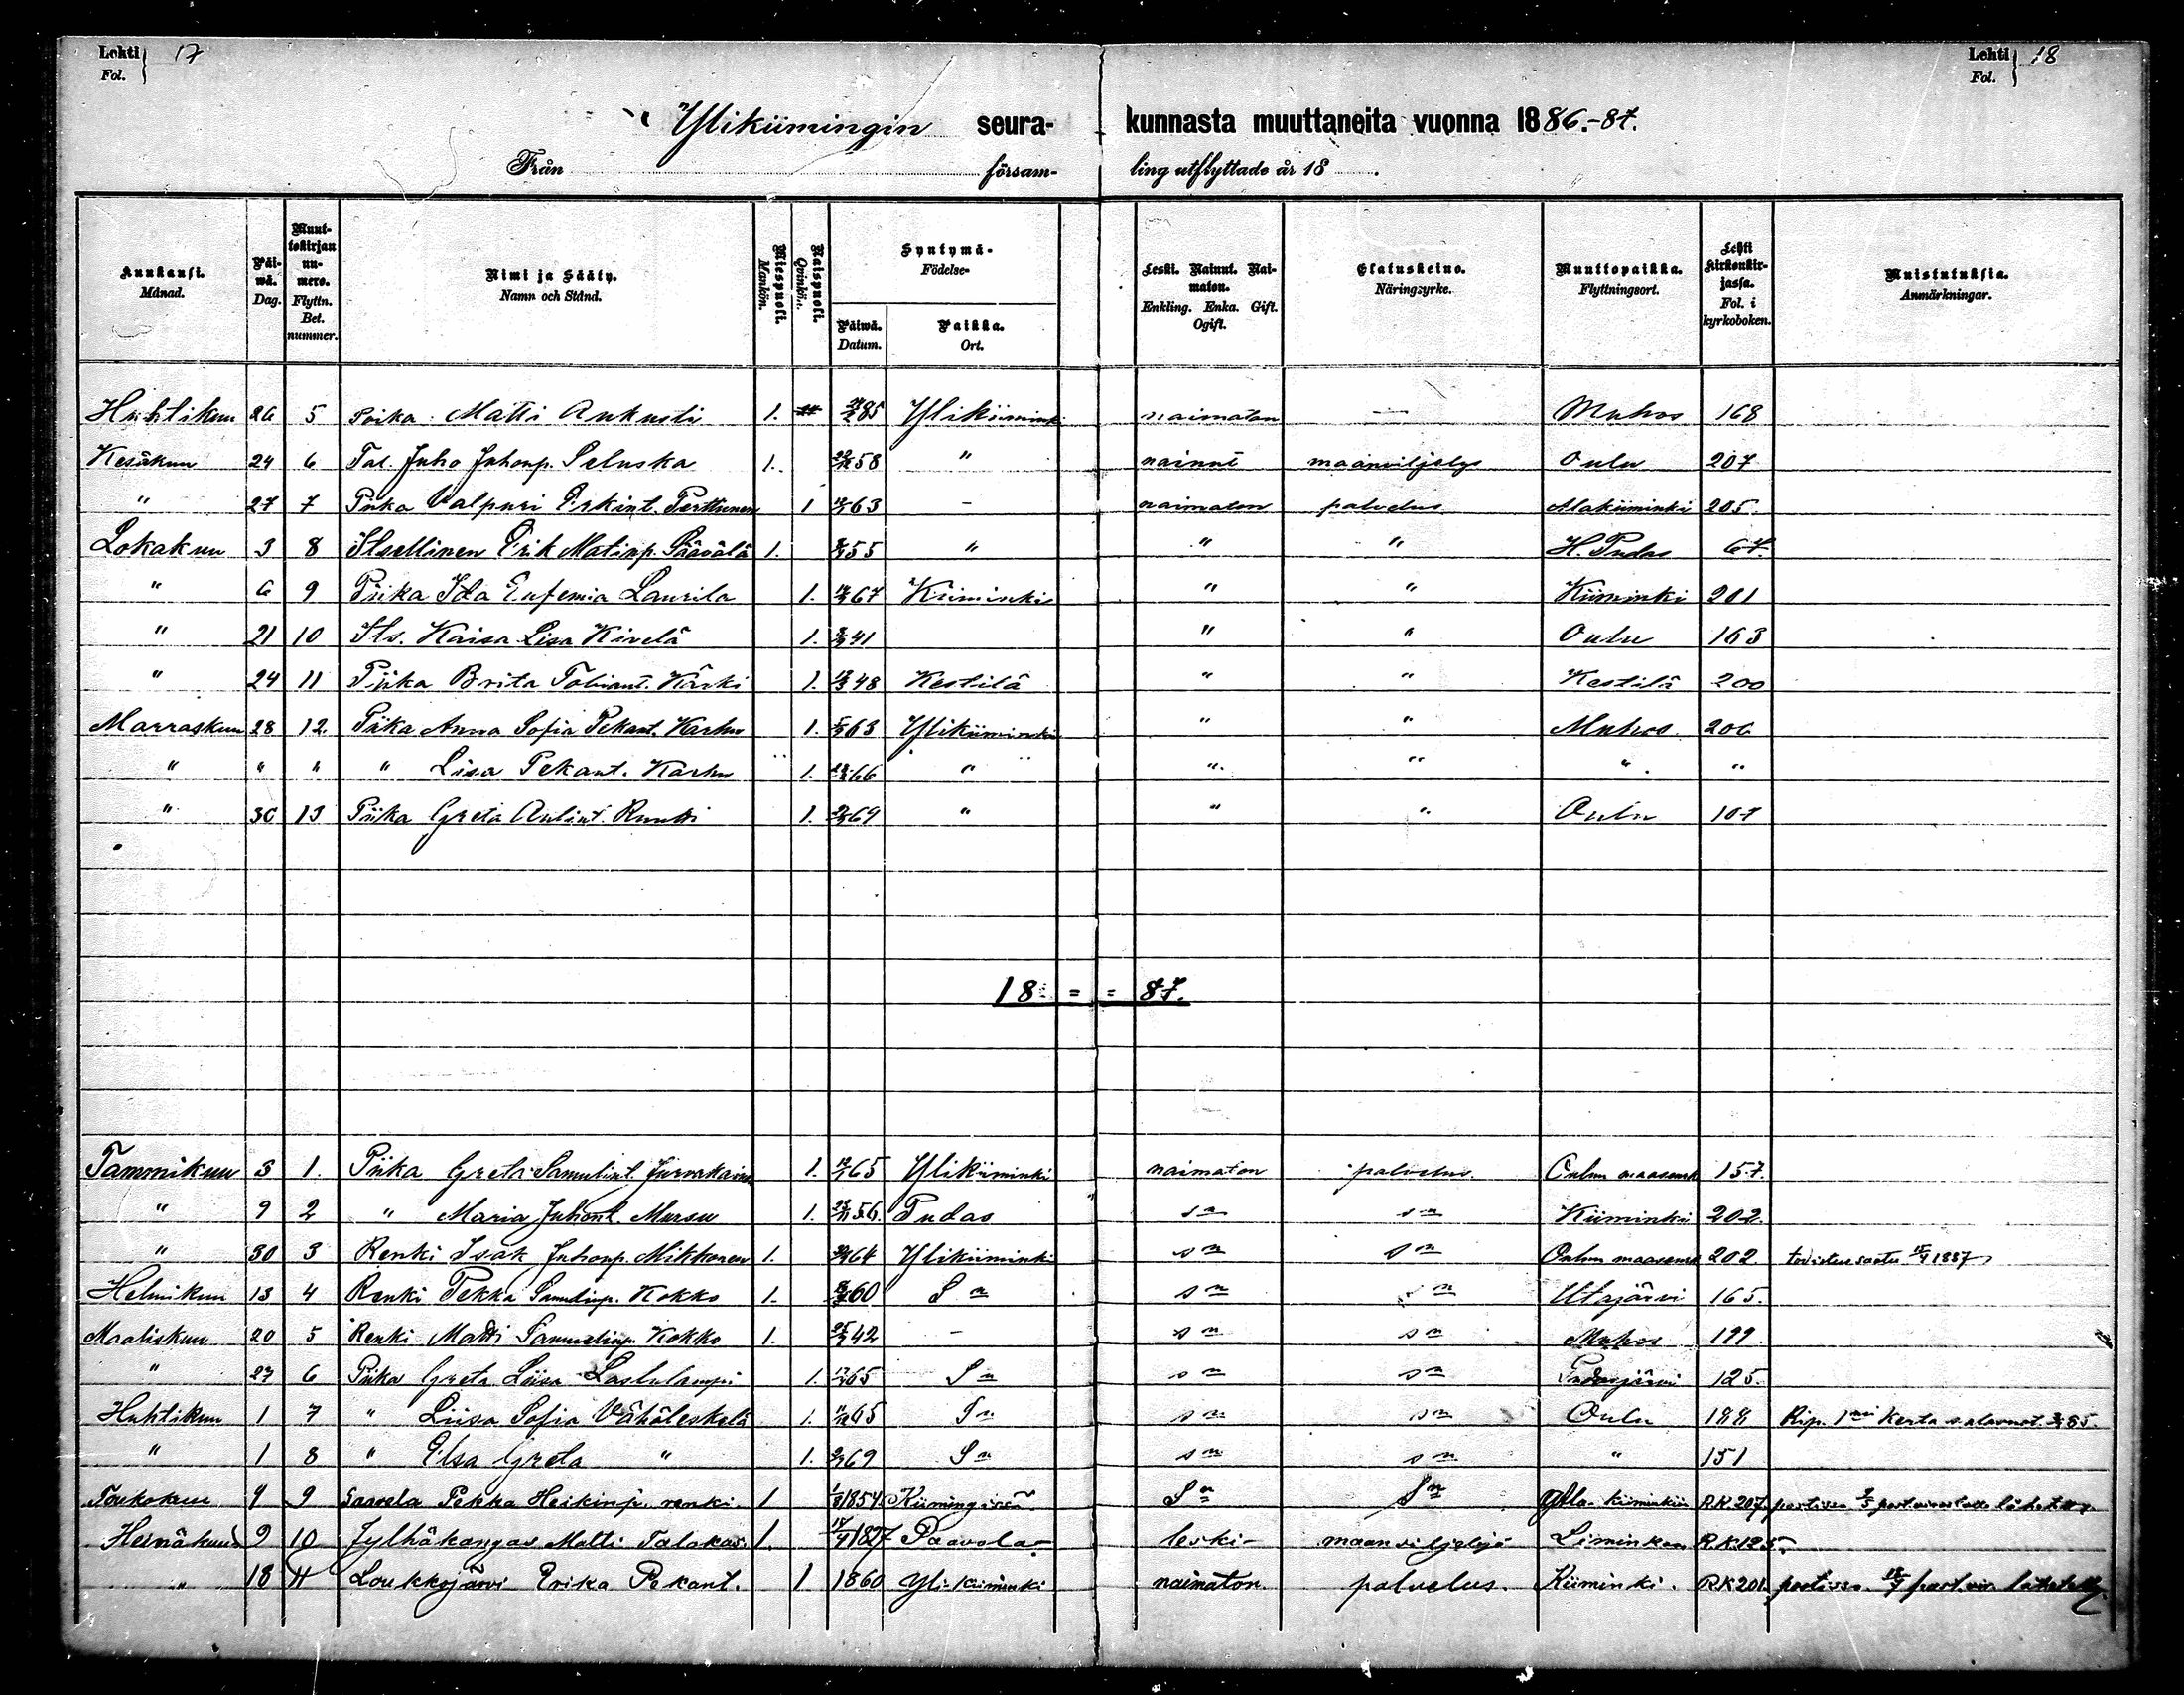 Lehti Fol. 17
Lehti Fol. 18
Ylikiimingin seurakunnasta muuttaneita vuonna 1886.-87.
Från församling utflyttade år 18
Kuukausi. Månad. | Päiwä. Dag. | Muuttokirjan numero. Flyttn. Bet. nummer. | Nimi ja Sääty. Namn och Stånd. | Miespuoli. Mankön. | Naispuoli. Qvinkön. | Syntymä- Födelse- | Päiwä. Datum. | Paikka. Ort. | Leski. Nainut. Naimaton. Enkling. Enka. Gift. Ogift. | Elatuskeino. Näringsyrke. | Muuttopaikka. Flyttningsort. | Lehti kirkonkirjassa. Fol. i kyrkoboken. | Muistutuksia. Anmärkningar.
Huhtikuu 26 5 Poika Matti Aukusti 1. 85 Ylikiiminki naimaton — Muhos 168
Kesäkuu 24 6 Tal. Juho Juhonp. Seluska 1. 58 " nainut maanviljelys Oulu 207
" 27 7 Piika Valpuri Erkint. Perttunen 1 63 - naimaton palvelus Alakiiminki 205.
Lokakuu 3 8 Itsellinen Erik Matinp. Päävälä 1. 55 " " " H. Pudas 67.
" 6 9 Piika Ida Eufemia Laurila 1. 67 Kiiminki " " Kiiminki 201
" 21 10 Its. Kaisa Lisa Kivelä 1. 41 " " Oulu 163
" 24 11 Piika Brita Tobiant. Kärki 1. 48 Kestilä " " Kestilä 200
Marraskuu 28 12. Piika Anna Sofia Pekant. Karhu 1. 63 Ylikiiminki " " Muhos 206
" " " " Lisa Pekant. Karhu 1. 66 " " " " "
" 30 13 Piika Greta Antint. Ruutti 1. 69 " " " Oulu 107
18 = = 87.
Tammikuu 3 1. Piika Greta Samulint. 1. 65 Ylikiiminki naimaton palvelus. Oulun maaseurk 157.
" 9 2 " Maria Juhont. Mursu 1. 56. Pudas sn sn Kiiminki 202.
" 30 3 Renki Isak Juhonp. Mikkonen 1. 64 Ylikiiminki sn sn Oulun maaseurk 202. todistus saatu 15/4 1887
Helmikuu 13 4 Renki Pekka Samulinp. Kokko 1. 60 Sn sn sn Utajärvi 165.
Maaliskuu 20 5 Renki Matti Samuelinp. Kokko 1. 42 - sn sn Muhos 199.
" 27 6 Piika Greta Liisa Lastulampi 1. 65 Sn sn sn Pudasjärvi 125.
Huhtikuu 1 7 " Liisa Sofia Vähäleskelä 1. 65 Sn sn sn Oulu 188 Rip. 1 kerta salavuot. 85.
" 1 8 " Elsa Greta " 1. 69 Sn sn sn " 151
Toukokuu 4 9 Saavela Pekka Heikinp. renki 1 1854 Kiimingissä Sn Sn Yla-kiiminkiin R.K. 207. postissa lähetetty
Heinäkuu 9 10 Jylhäkangas Matti Talokas 1. 1827 Paavola- leski- maanviljelijä Liminkaan R.K. 125.
" 18 11 Loukkojärvi Erika Pekant. 1 1860 Yli-kiiminki naimaton. palvelus. Kiiminki. R.K 201. postissa lähetetty.